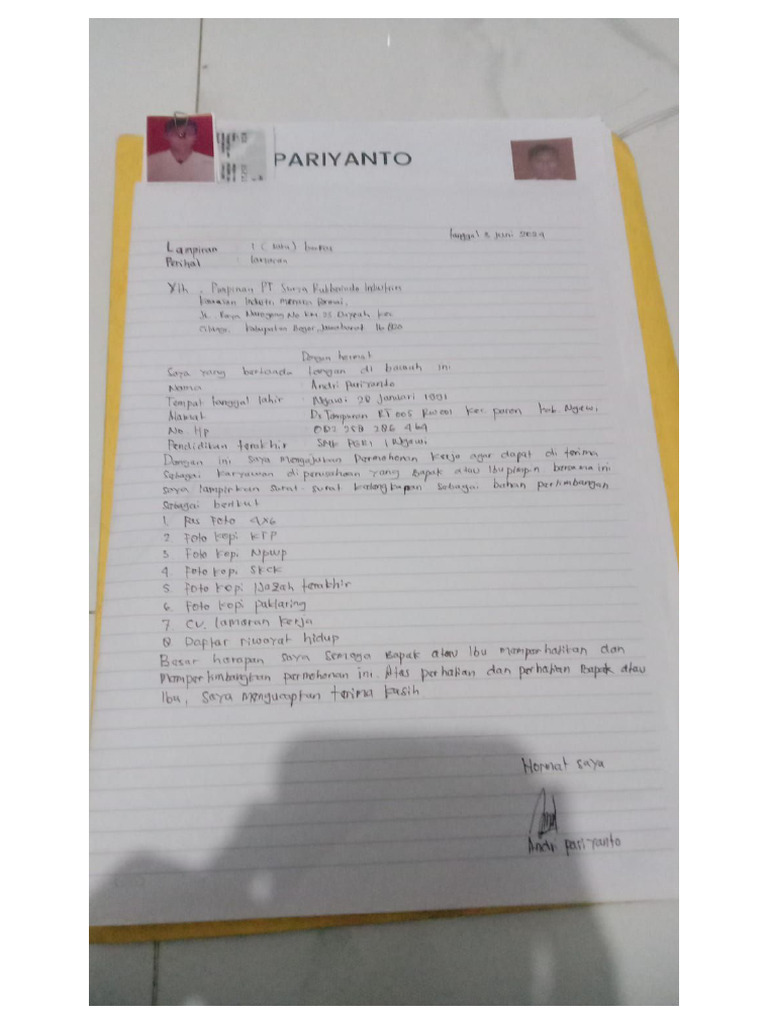 PARIYANTO
Tanggal 5 Juni 2024
Lampiran : 1 (satu) berkas
Perihal : lamaran
Yth. Pimpinan PT Surya Rubberindo Industries
Kawasan Industri Menara Permai,
Jl. Raya Narogong No Km 23
Cileungsi, Kabupaten Bogor, Jawa Barat
Dengan hormat
Saya yang bertanda tangan di bawah ini
Nama : Andri Pariyanto
Tempat tanggal lahir : Ngawi 28 Januari 1991
Alamat : RT 005 kec. paron kab. Ngawi
No. Hp : 082 258 286 469
Pendidikan terakhir : SMK PGRI 1 Ngawi
Dengan ini saya mengajukan Permohonan kerja agar dapat di terima
Sebagai karyawan di perusahaan yang Bapak atau Ibu pimpin bersama ini
saya lampirkan surat-surat kelengkapan sebagai bahan pertimbangan
sebagai berikut
1. Pas Foto 4x6
2. Foto kopi KTP
3. Foto kopi Npwp
4. Foto kopi SKCK
5. Foto kopi Ijazah terakhir
6. Foto kopi paklaring
7. CV. lamaran kerja
8. Daptar riwayat hidup
Besar harapan saya semoga Bapak atau Ibu memperhatikan dan
mempertimbangkan permohonan ini. Atas perhatian dan perhatian Bapak atau
Ibu, saya mengucapkan terima kasih
Hormat saya
Andri pariyanto